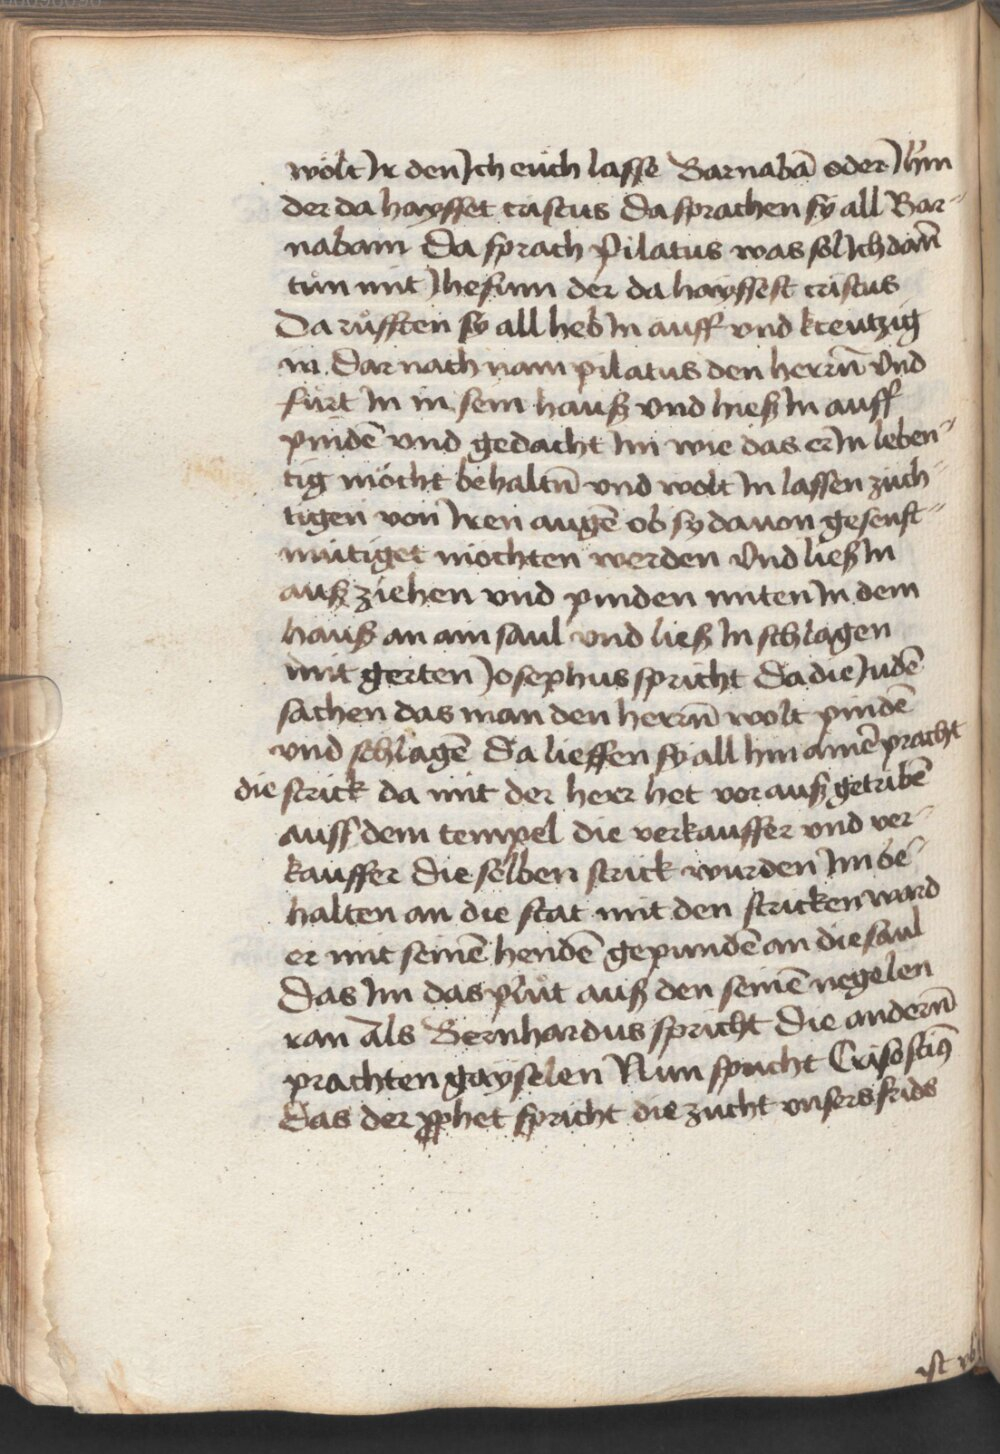 wölt Ir den Ich euch lasse Barnabā oder Jhm
der da haysset cristus Da sprachen sy all Bar-
nabam Da sprach Pilatus was sol Ich dañ
tůn mit Jhesum der da hayssest cristus
Da růfften sy all heb In auff vnd kreutzig
in. Dar nach nam pilatus den herrñ Vnd
fůrt In in sein hauß vnd hieß In auff
pindē vnd gedacht Im wie das er In leben-
tig möcht behaltñ vnd wolt In lassen züch-
tigen von Iren augē ob sy dauon gesenft-
mütiget möchten werden Vnd ließ In
auß ziehen vnd pinden miten In dem
hauß an ain saul vnd ließ In schlagen
mit gerten Josephus spricht Da die Judē
sachen das man den herrñ wolt pindē
vnd schlagē Da lieffen sy all hin ainē pracht
die strick da mit der herr het vor auß getribē
auss dem tempel die verkauffer vnd ver-
kauffer Die selben strick wurden Im be-
halten an die stat mit den stricken ward
er mit seinē hendē gepundē an die saul
Das Im das plůt auß den seinē negelen
ran Als Bernhardus spricht Die anderñ
prachten gayselen Nun spricht Crisostim9
Das der prophet spricht die zucht vnsers frids
ist vb